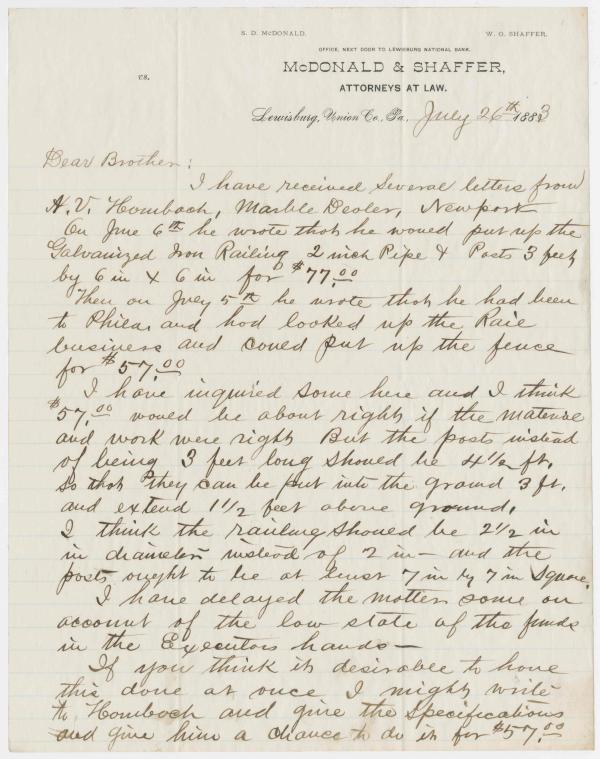 S. D. McDONALD. W. O. SHAFFER.
OFFICE, NEXT DOOR TO LEWISBURG NATIONAL BANK.
vs. McDONALD & SHAFFER,
ATTORNEYS AT LAW.
Lewisburg, Union Co., Pa., July 26th 1883
Dear Brother:
I have received several letters from
H. V. Hombach, Marble Dealer, Newport
On June 6th he wrote that he would put up the
Galvanized Iron Railing 2 inch Pipe & Posts 3 feet
by 6 in x 6 in for $77.00
Then on July 5th he wrote that he had been
to Phila. and had looked up the Rail
business and could put up the fence
for $57.00
I have inquired some here and I think
$57.00 would be about right if the material
and work were right But the posts instead
of being 3 feet long should be 4 1/2 ft.
so that they can be put into the ground 3 ft.
and extend 1 1/2 feet above ground.
I think the railing should be 2 1/2 in
in diameter instead of 2 in - and the
posts ought to be at least 7 in by 7 in square.
I have delayed the matter some on
account of the low state of the funds
in the Executors hands -
If you think it desirable to have
this done at once I might write
to Hombach and give the specifications
and give him a chance to do it for $57.00